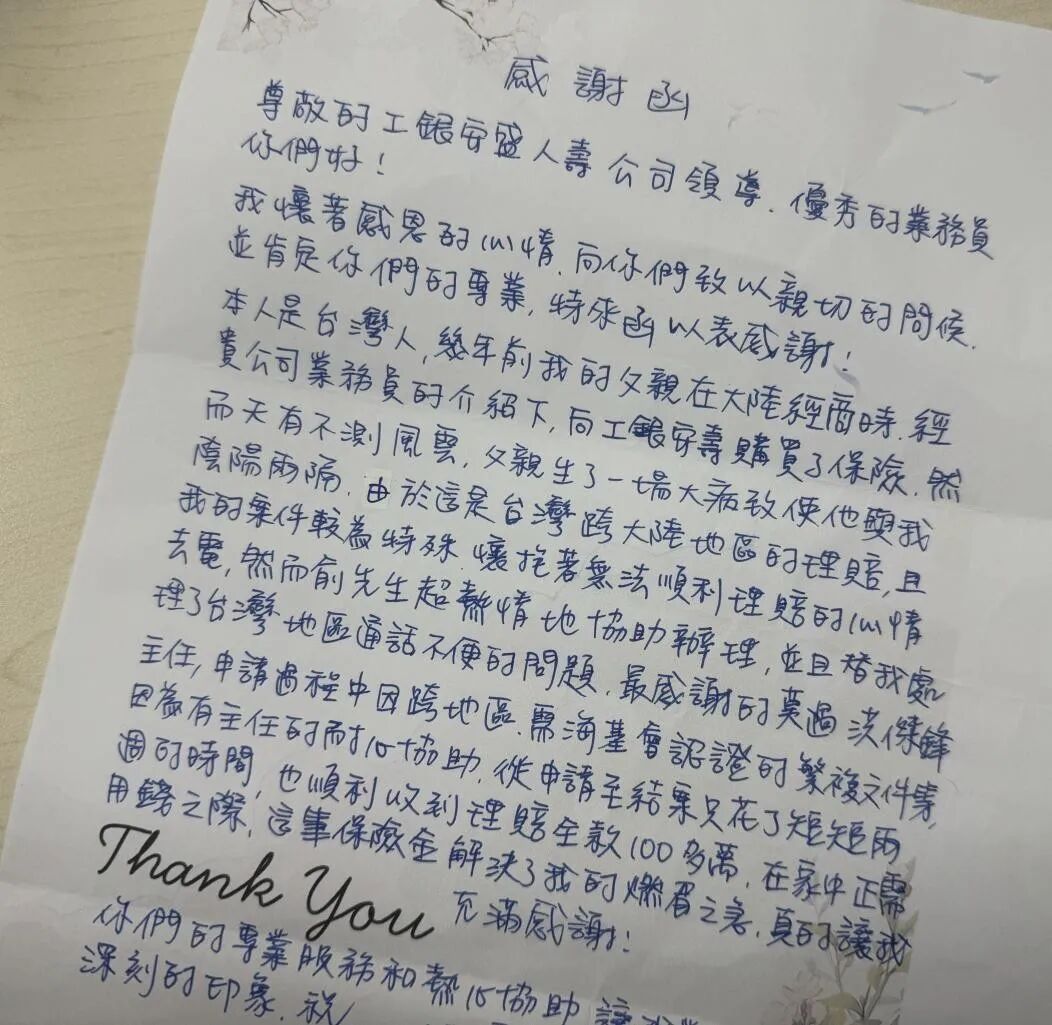 感謝函
尊敬的工銀安盛人壽公司領導、優秀的業務員
你們好！
我懷著感恩的心情、向你們致以親切的問候、
並肯定你們的專業，特來函以表感謝！
本人是台灣人，幾年前我的父親在大陸經商時、經
貴公司業務員的介紹下，向工銀安壽購買了保險、然
而天有不測風雲，父親生了一場大病致使他與我
陰陽兩隔、由於這是台灣跨大陸地區的理賠，且
我的案件較為特殊、懷抱著無法順利理賠的心情
去電，然而俞先生超熱情地協助辦理，並且替我處
理了台灣地區通話不便的問題、最感謝的莫過洪傑鋒
主任，申請過程中因跨地區、需海基會認證的繁複文件等，
因為有主任的耐心協助、從申請至結果只花了短短兩
週的時間，也順利收到理賠全款100多萬，在家中正需
用錢之際，這筆保險金解決了我的燃眉之急，真的讓我
Thank You 充滿感謝！
你們的專業服務和熱心協助讓我
深刻的印象、祝